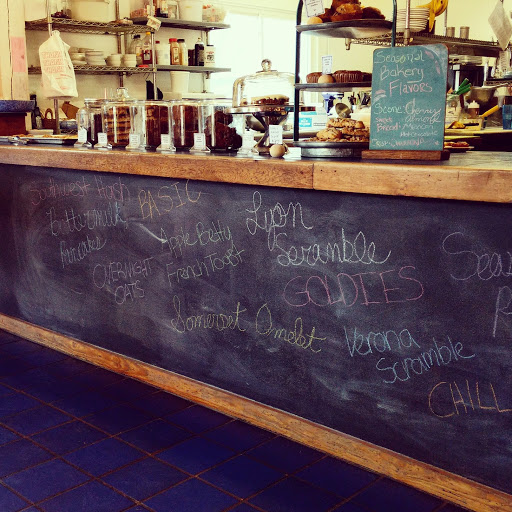 Seasonal
Bakery
Flavors
Scone: Cherry
Almond
Bread:
Southwest Hash
BASIC
Buttermilk
Pancakes
OVERNIGHT
OATS
Apple Betty
French Toast
Somerset Omelet
Lyon
Scramble
GOLDIES
Verona
Scramble
CHILL